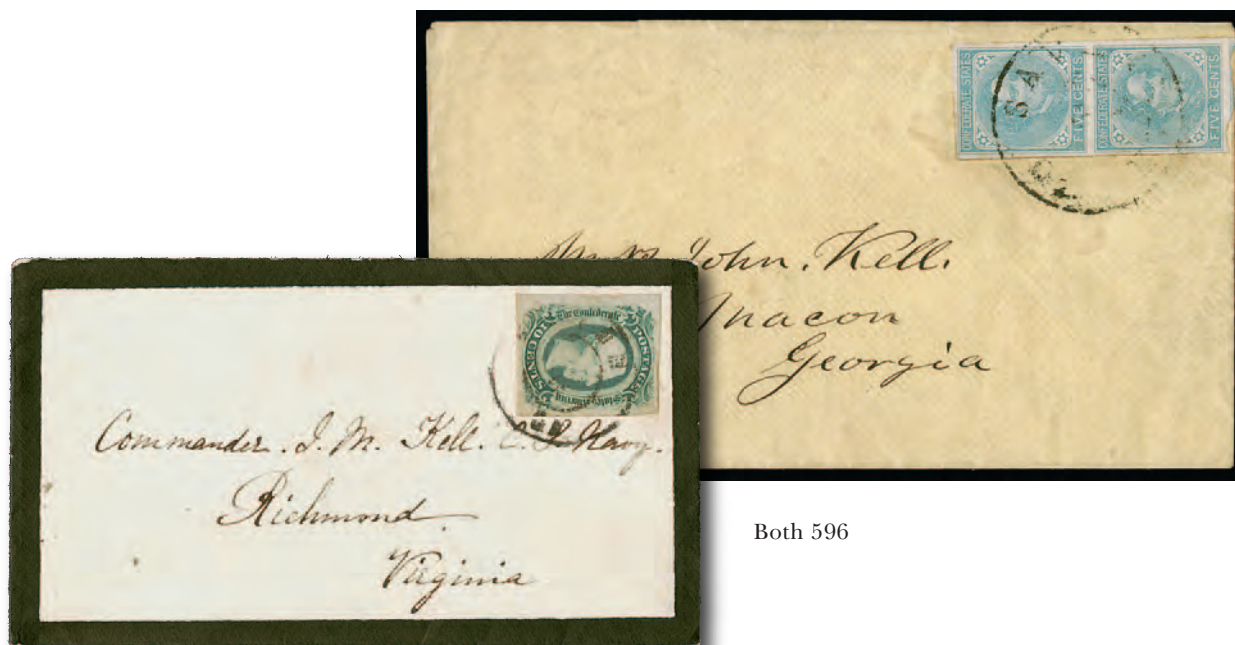 CONFEDERATE STATES
FIVE CENTS
CONFEDERATE STATES
FIVE CENTS
SA
John. Kell.
Macon
Georgia
The Confederate
States of America
POSTAGE
TEN CENTS
Commander. J. M. Kell. C. S. Navy.
Richmond.
Virginia
Both 596